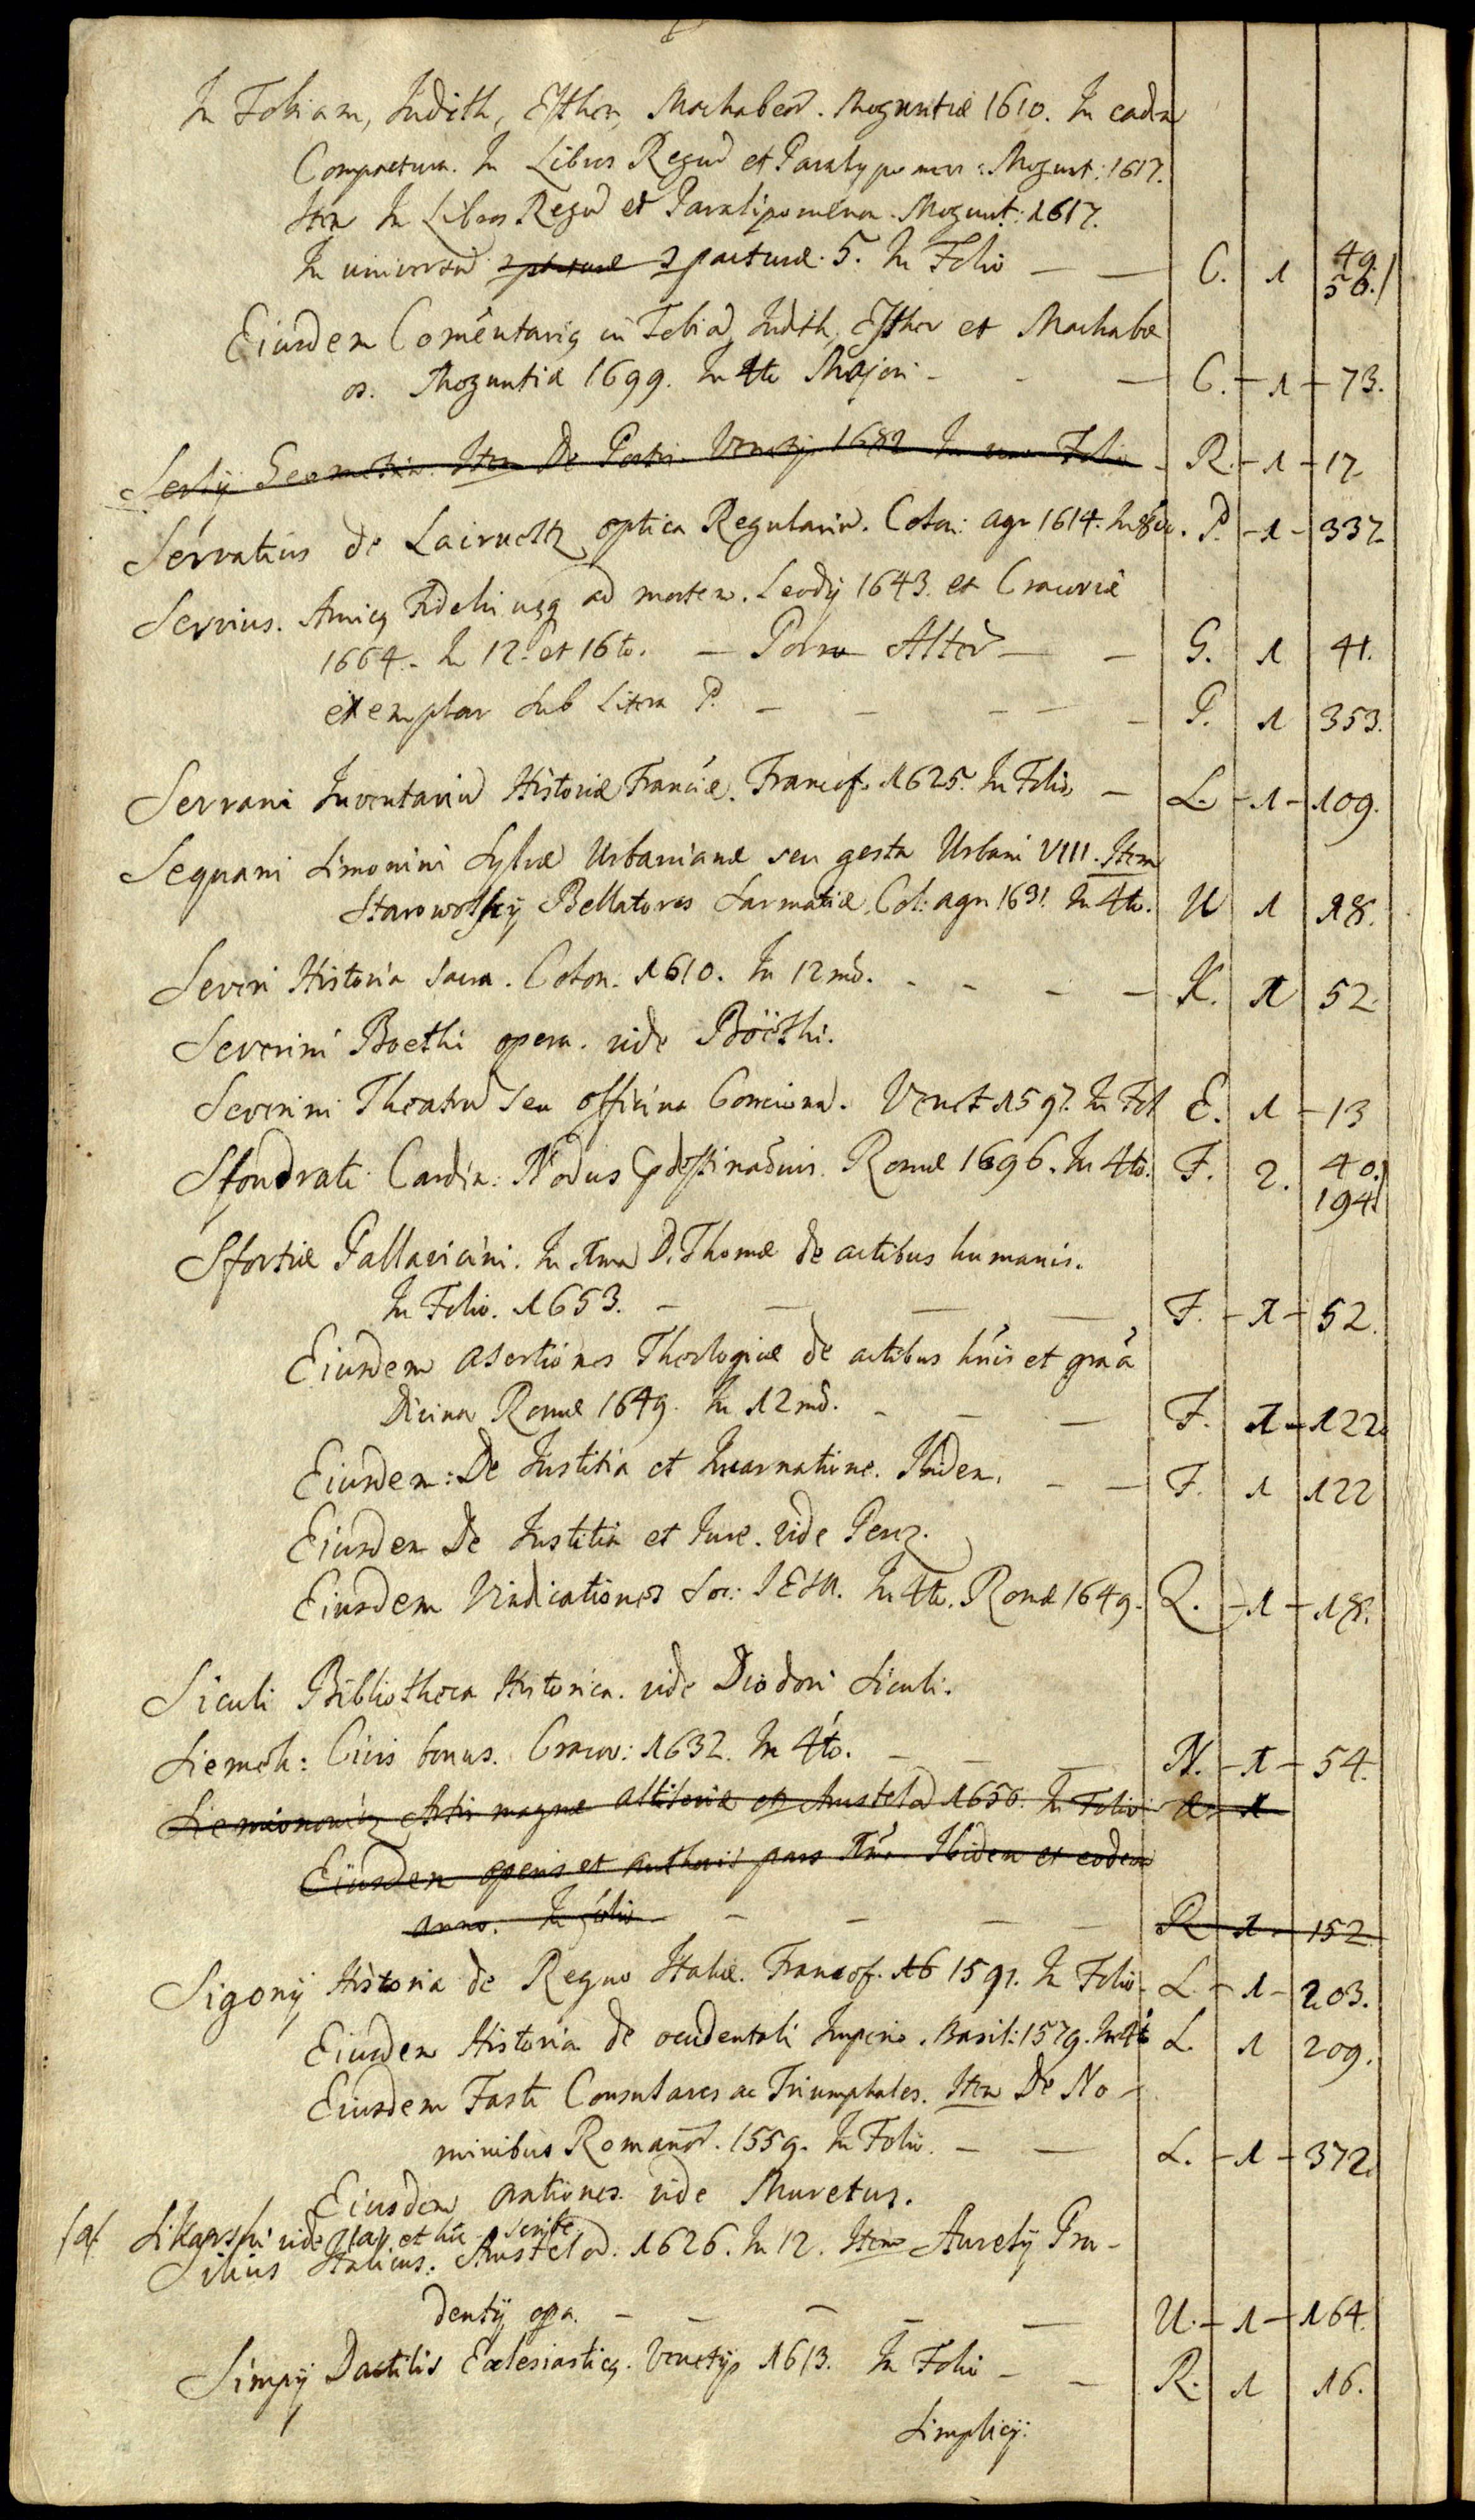 In Tobiam, Judith, Esther, Machabeor. Moguntiæ 1610. In eadē
Compactura. In Libros Regū et Paralypomen: Mogunt: 1617.
Item In Libros Regū et Paralipomenon. Mogunt: 1617.
In universū 5. In Folio — — C. 1 49. 56.
Eiusdem Comentarig in Tobiā, Judith, Esther et Machabæ
os. Moguntiæ 1699. In 4to Majori — — C. — 1 — 73.
Serlÿ Geometria. Item De Venetÿs 1682 In Folio — R. — 1 — 17
Servatius de Lairuelz optica Regulariū. Colon: agr 1614. In 8vo. P. — 1 — 337
Servius. Amicg Fidelis usq ad mortem. Leodÿ 1643. et Cracoviæ
1664. In 12. et 16to. — Porro Alterū — G. 1 41.
exemplar sub Litera P. — — — — P. 1 353.
Serrani Inventariū Historiæ Franciæ. Francof. 1625. In Folio — L. — 1 — 109.
Sequani Simonini Sylvæ Urbanianæ seu gesta Urbani VIII. Item
Starowolscÿ Bellatores Sarmatiæ. Col: agr 1631. In 4to. U 1 18.
Severi Historia sacra. Colon. 1610. In 12mo. — — — — K. 1 52.
Severini Boethi opera. vide Böethi.
Severini Theatrū seu officina Concionū. Venet 1597. In Fol E. 1 — 13
Sfondrati Cardin: Nodus Prædestinaõnis. Romæ 1696. In 4to. F. 2. 40. 194.
Sfortiæ Pallavicini. In D. Thomæ de actibus humanis.
In Folio. 1653. — — — — F. — 1 — 52.
Eiusdem asertiones Theologicæ de actibus hũis et grãa
Divina Romæ 1649. In 12mo. — — — F. 1 — 122.
Eiusdem: De Justitia et Incarnatione. Ibidem. — — F. 1 122
Eiusdem De Justitia et Jure. vide Perez.
Eiusdem Vindicationes Soc: JESU. In 4to. Romæ 1649. Q. — 1 — 18.
Siculi Bibliotheca Historica. vide Diodori Siculi.
Siemek: Civis bonus. Cracov: 1632. In 4to. — — — N. — 1 — 54.
Siemionowicz Artis magnæ Amstelod 1650. In Folio 1
Eiusdem operis et authoris pars Ibidem et eodem
anno. In folio — — — — R 1 — 152
Sigonÿ Historia de Regno Italiæ. Francof. 16 1591. In Folio. L. — 1 — 203.
Eiusdem Historia de occidentali Imperio. Basil: 1579. In 4to L. 1 209.
Eiusdem Fasti Consulares ac Triumphales. Item De No-
minibus Romanor. 1559. In Folio. — — L. — 1 — 372.
Eiusdem orationes vide Muretus.
/a/. vide /a/. et hic scribe
Silius Italicus: Amstelod. 1626. In 12. Item Aurelÿ Pru-
dentÿ opa. — — — — — U. — 1 — 164.
Simpÿ Dactilis Ecclesiasticg. Venetÿs 1613. In Folio — — R. 1 16.
Simplicÿ: